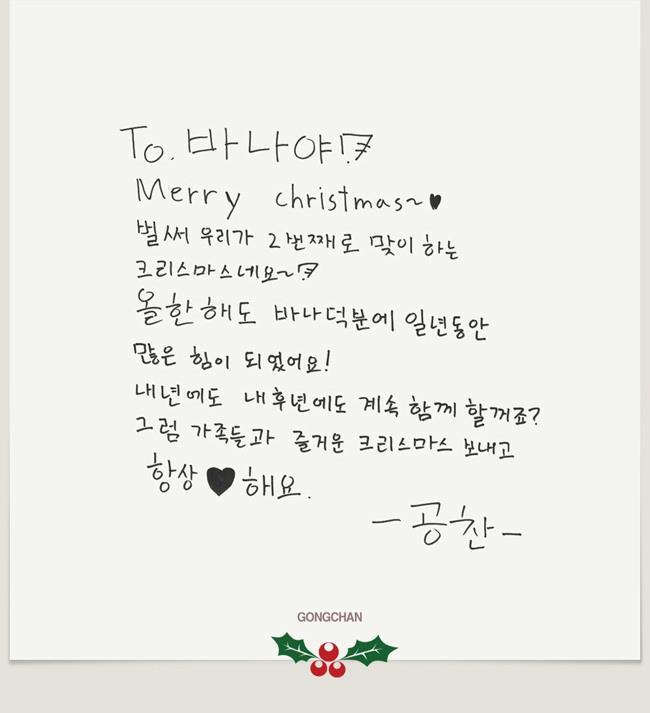 To. 바나야!
Merry christmas~♥
벌써 우리가 2번째로 맞이 하는
크리스마스네요~
올한해도 바나덕분에 일년동안
많은 힘이 되었어요!
내년에도 내후년에도 계속 함께 할꺼죠?
그럼 가족들과 즐거운 크리스마스 보내고
항상 ♥ 해요.
- 공찬 -
GONGCHAN